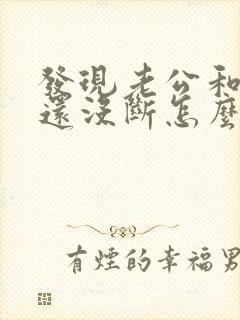 發現老公和
還沒斷怎麼
有煙的幸福男